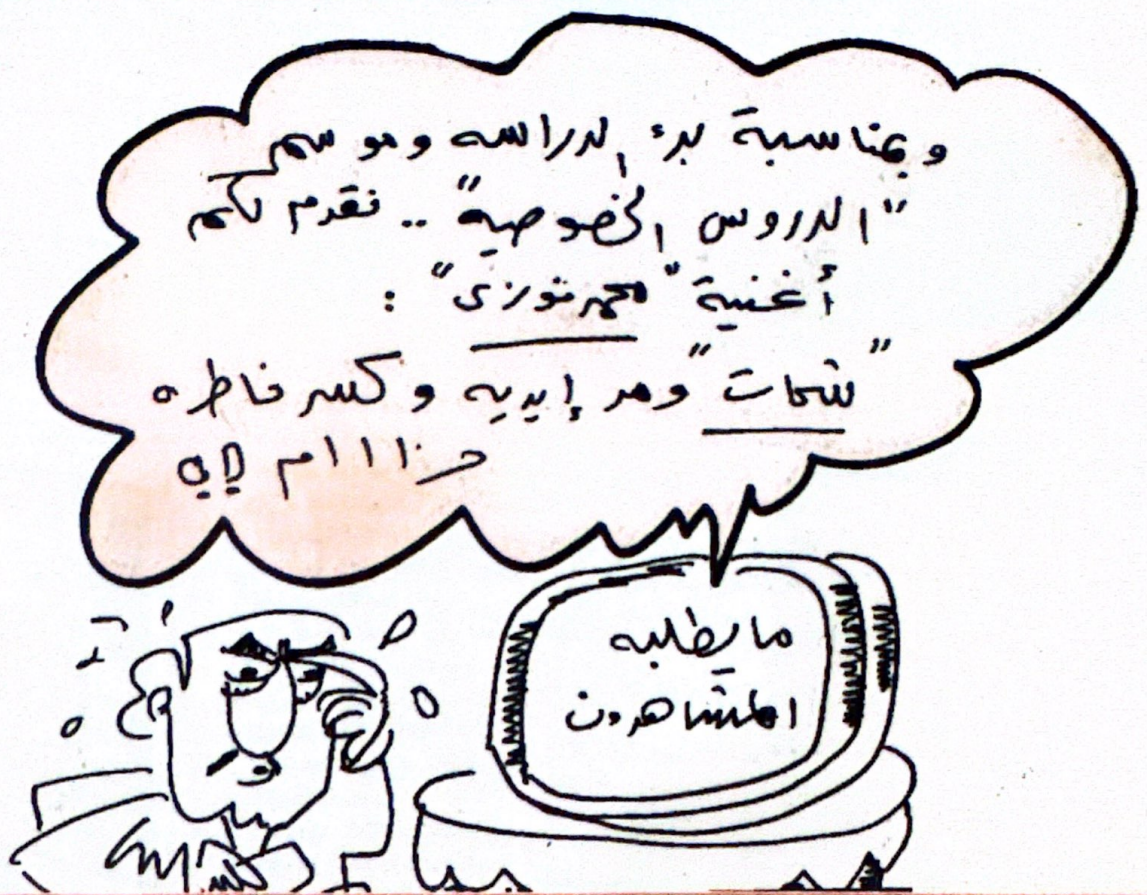 وبمناسبة بدء الدراسه وموسم
"الدروس الخصوصية" .. نقدم لكم
أغنية "محمد فوزى" :
"شحات" ومد إيديه وكسر خاطره
حرااام ليه
ما يطلبه
المشاهدون